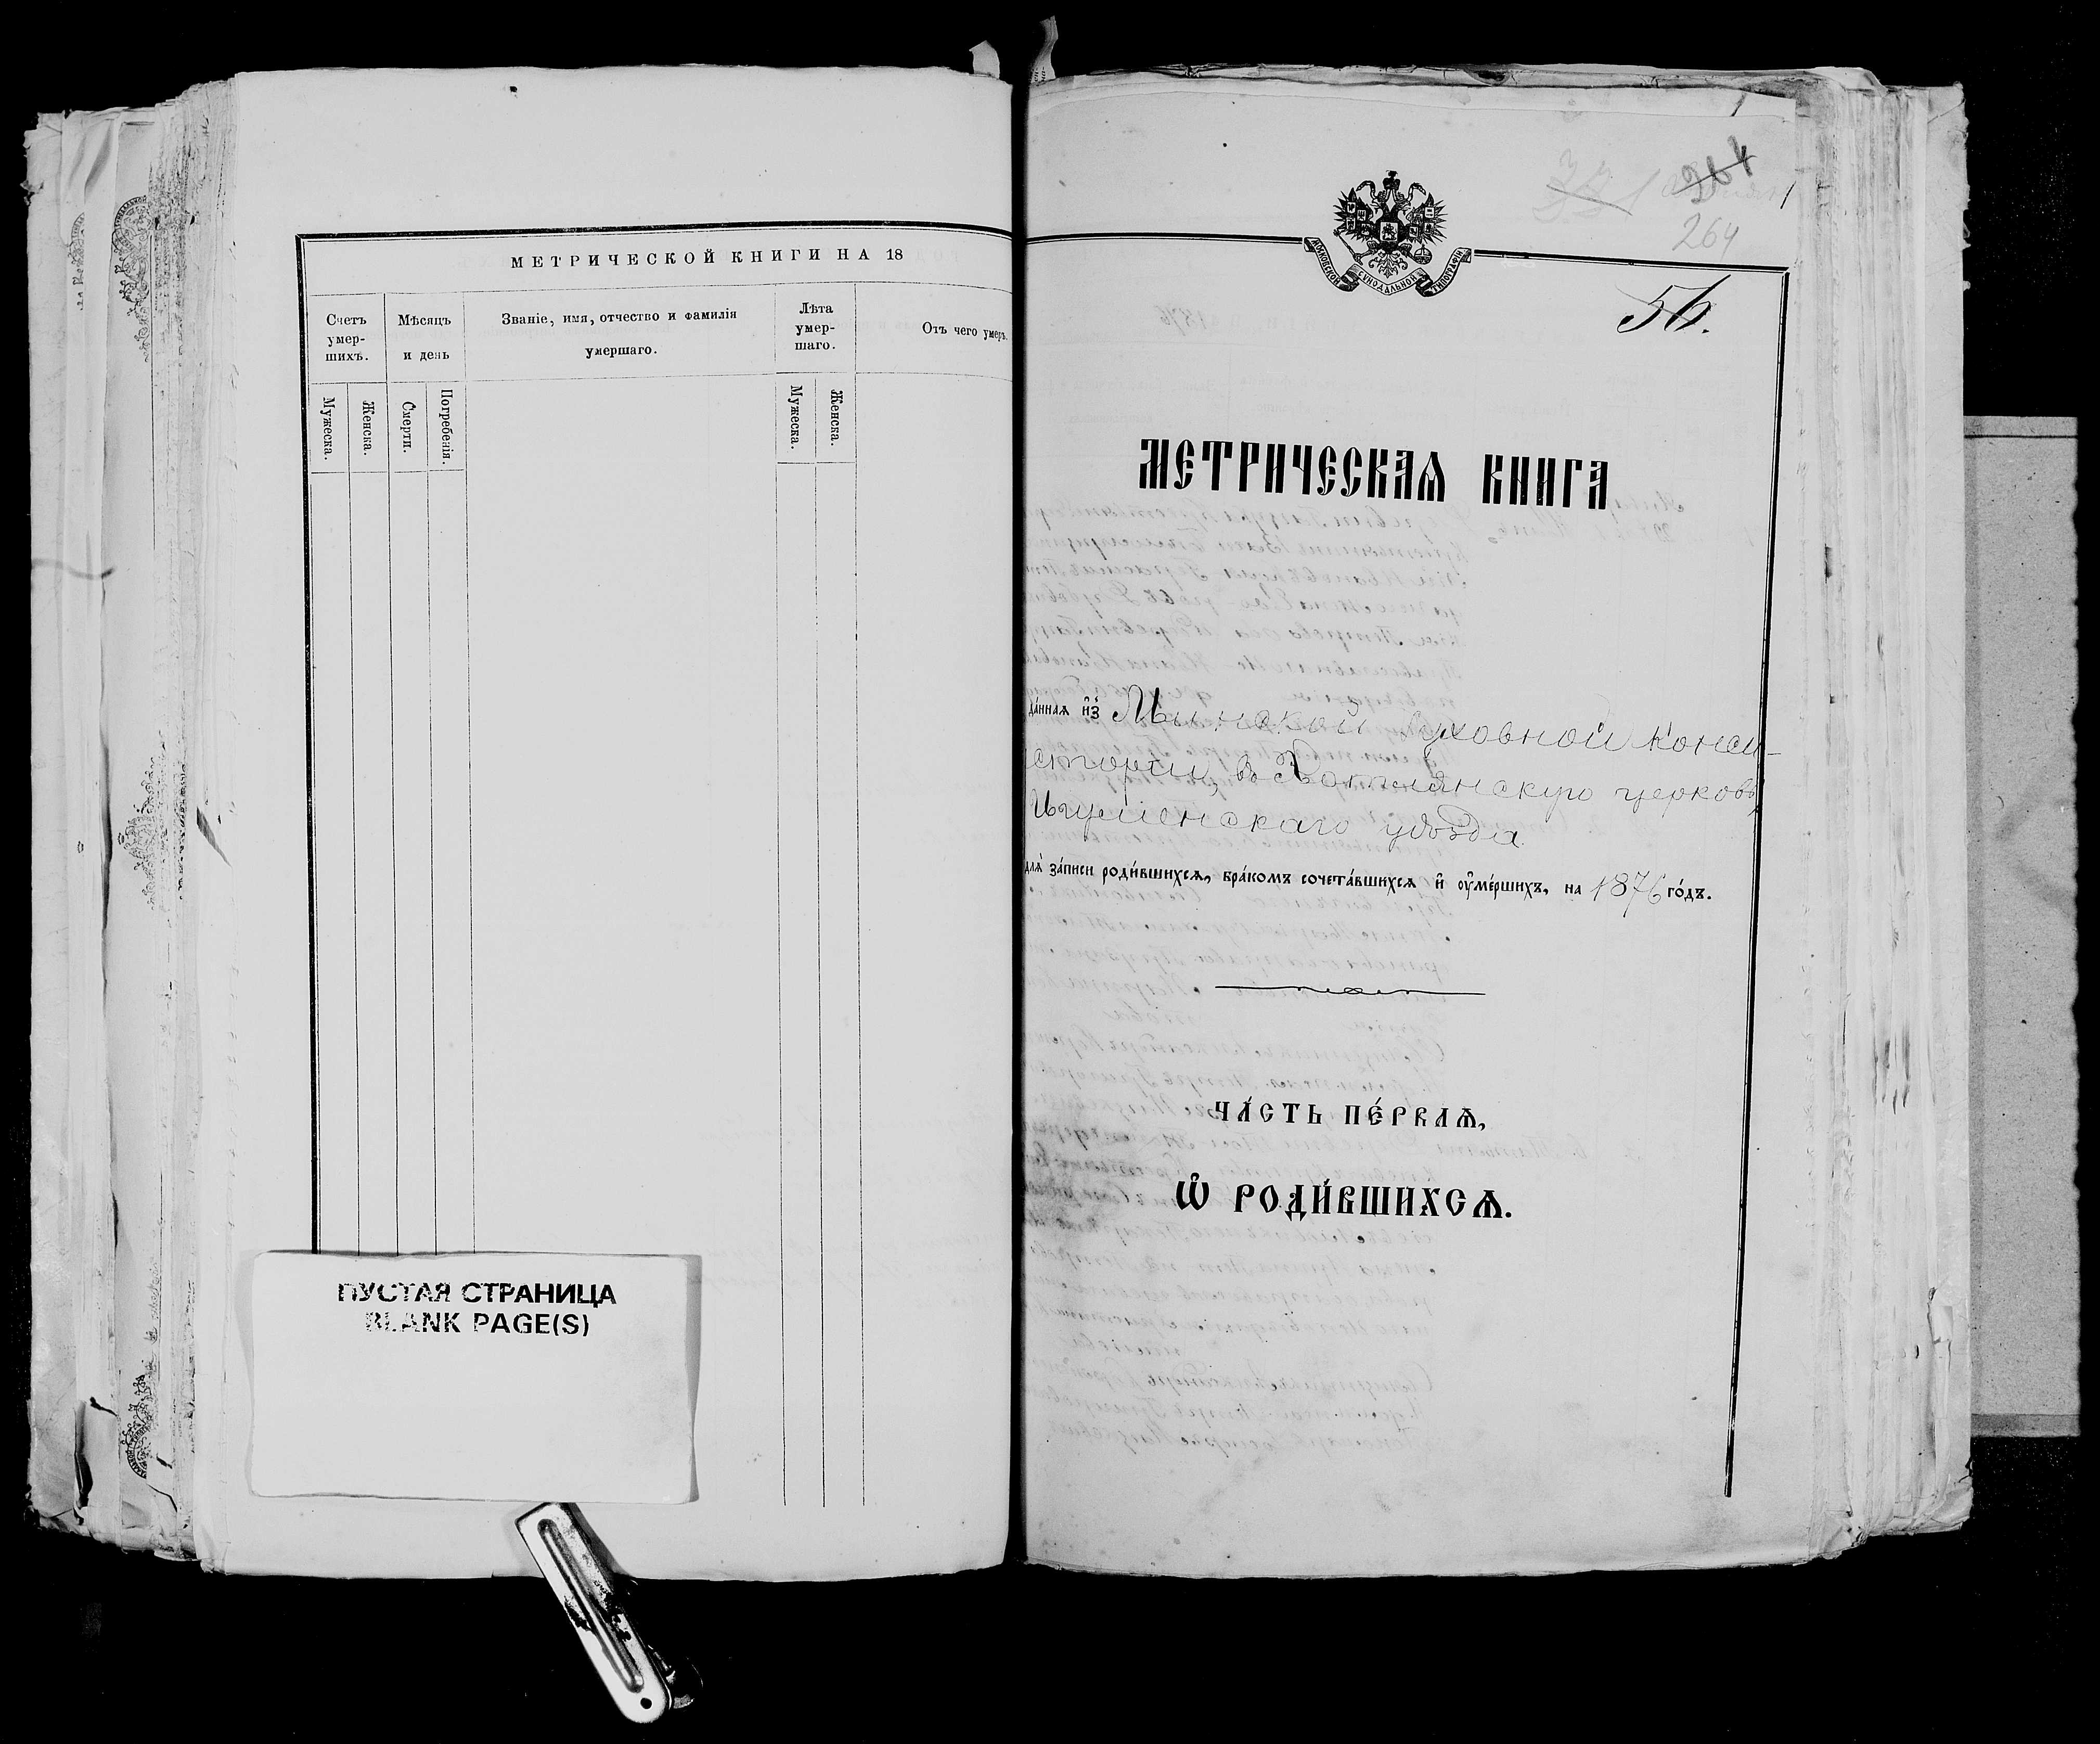 МЕТРИЧЕСКОЙ КНИГИ НА 18
Счетъ умер-шихъ.
Мѣсяцъ и день
Званіе, имя, отчество и фамилія
умершаго.
Лѣта умер-шаго.
Отъ чего умеръ.
Мужеска.
Женска.
Смерти.
Погребенія.
Мужеска.
Женска.
ПУСТАЯ СТРАНИЦА
BLANK PAGE(S)
264
264
МОСКОВСКОЙ СѴНОДАЛЬНОЙ ТИПОГРАФІИ
56.
МЕТРИЧЕСКАѦ КНИГА
да́ннаѧ и҆з̾ Минской Духовной Конси-
сторіи, въ Хотлянскую церковь,
Игуменскаго уѣзда
для̀ за́писи роди́вшихсѧ, бра́комъ сочета́вшихсѧ и҆ ᲂу҆ме́ршихъ, на 1876 го́дъ.
ЧА́СТЬ ПЕ́РВАѦ,
Ѽ РОДИ́ВШИХСѦ.